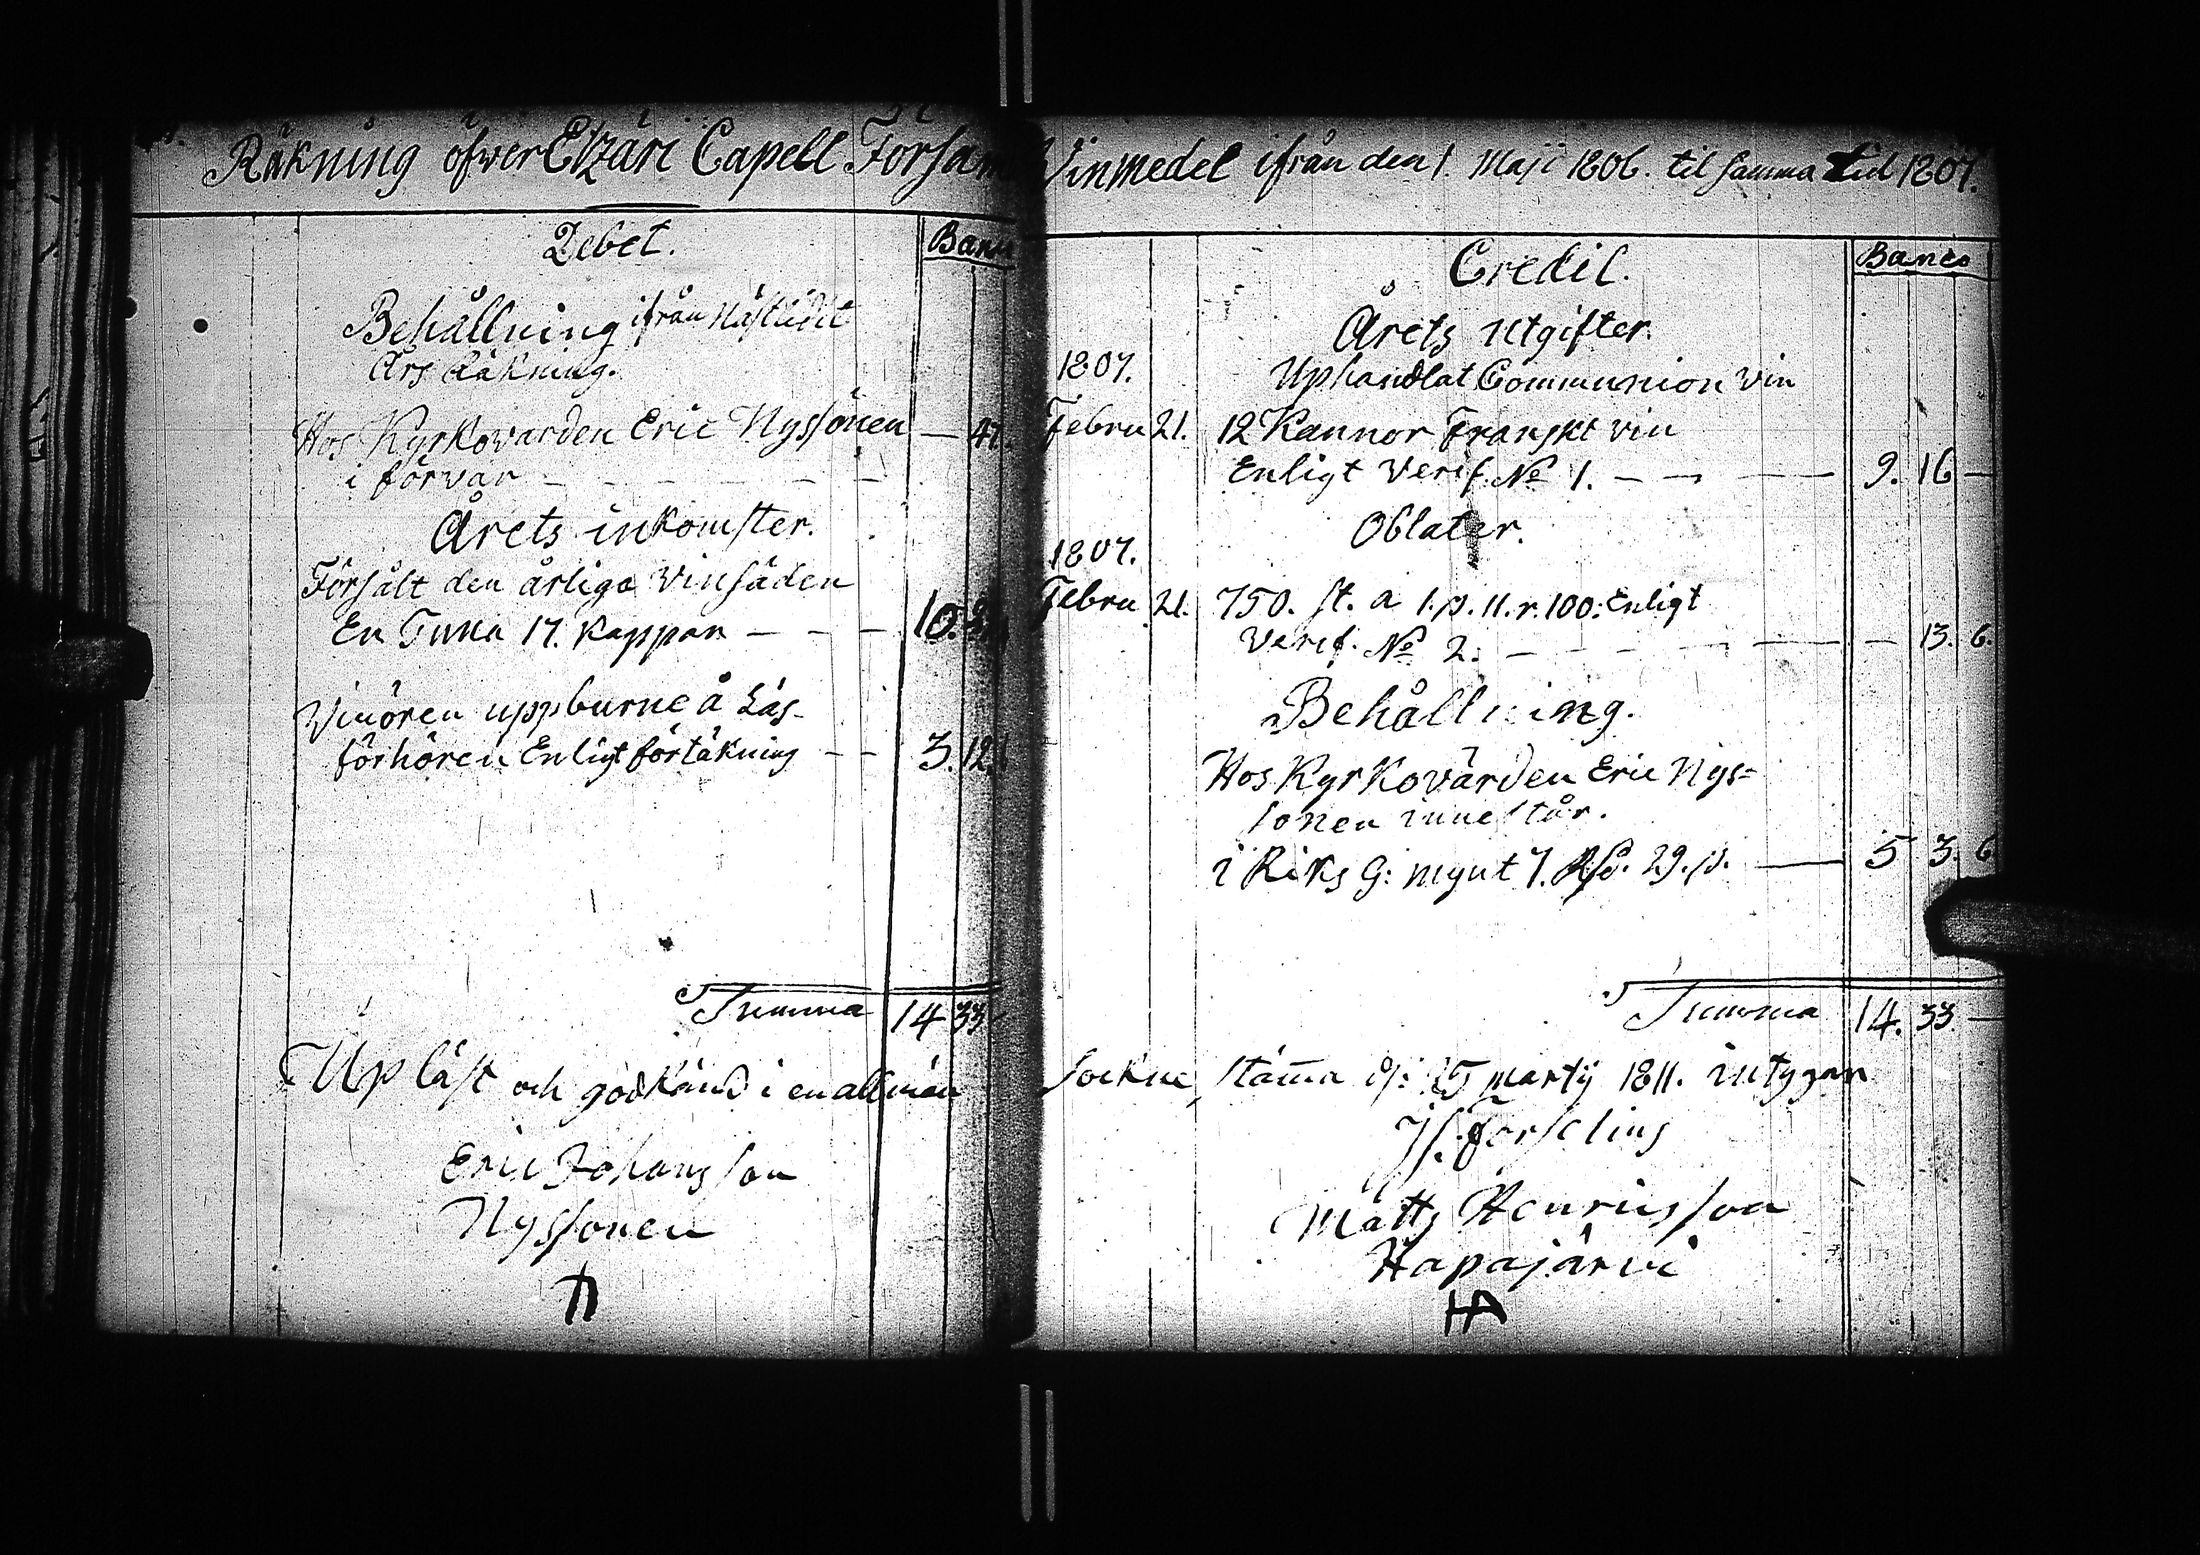 Räkning öfwer Etzäri Capell Försam
Debet.
Banco
Behållning ifrån Nästlidit
Års Räkning.
Hos Kyrkovärden Eric Nyssönen — 47.
i förvar — — — — — —
Årets inkomster.
Försält den årliga Vinsäden
En Tuna 17. Kappar — — — 10.
Vinören uppburne å Läs-
förhören Enligt förtäkning — — 3. 12.
Summa 14 33 -
Upläst och godkänd i en allmän
Eric Johansson
Nyssönen
Vinmedel ifrån den 1. Maji 1806. til samma tid 1807.
Credit.
Banco
Årets Utgifter.
1807.
Uphandlat Communion Vin
Febru 21. 12 Kannor Franskt vin
Enligt Verif. No 1. — — — — 9. 16 —
Oblater.
1807.
Febru 21. 750. st. a 1. s. 11. r. 100: Enligt
Verif. No 2. — — — — — — 13. 6.
Behållning.
Hos Kyrkovärden Eric Nys=
sönen innestår.
i Riks G: mynt 7. Rd. 29. s. — 5 3. 6
Summa 14. 33 —
Sockne stäma d: 25 Martij 1811. intygar
Js. Forselius
Matts Henricsson
Hapajärvi
HA